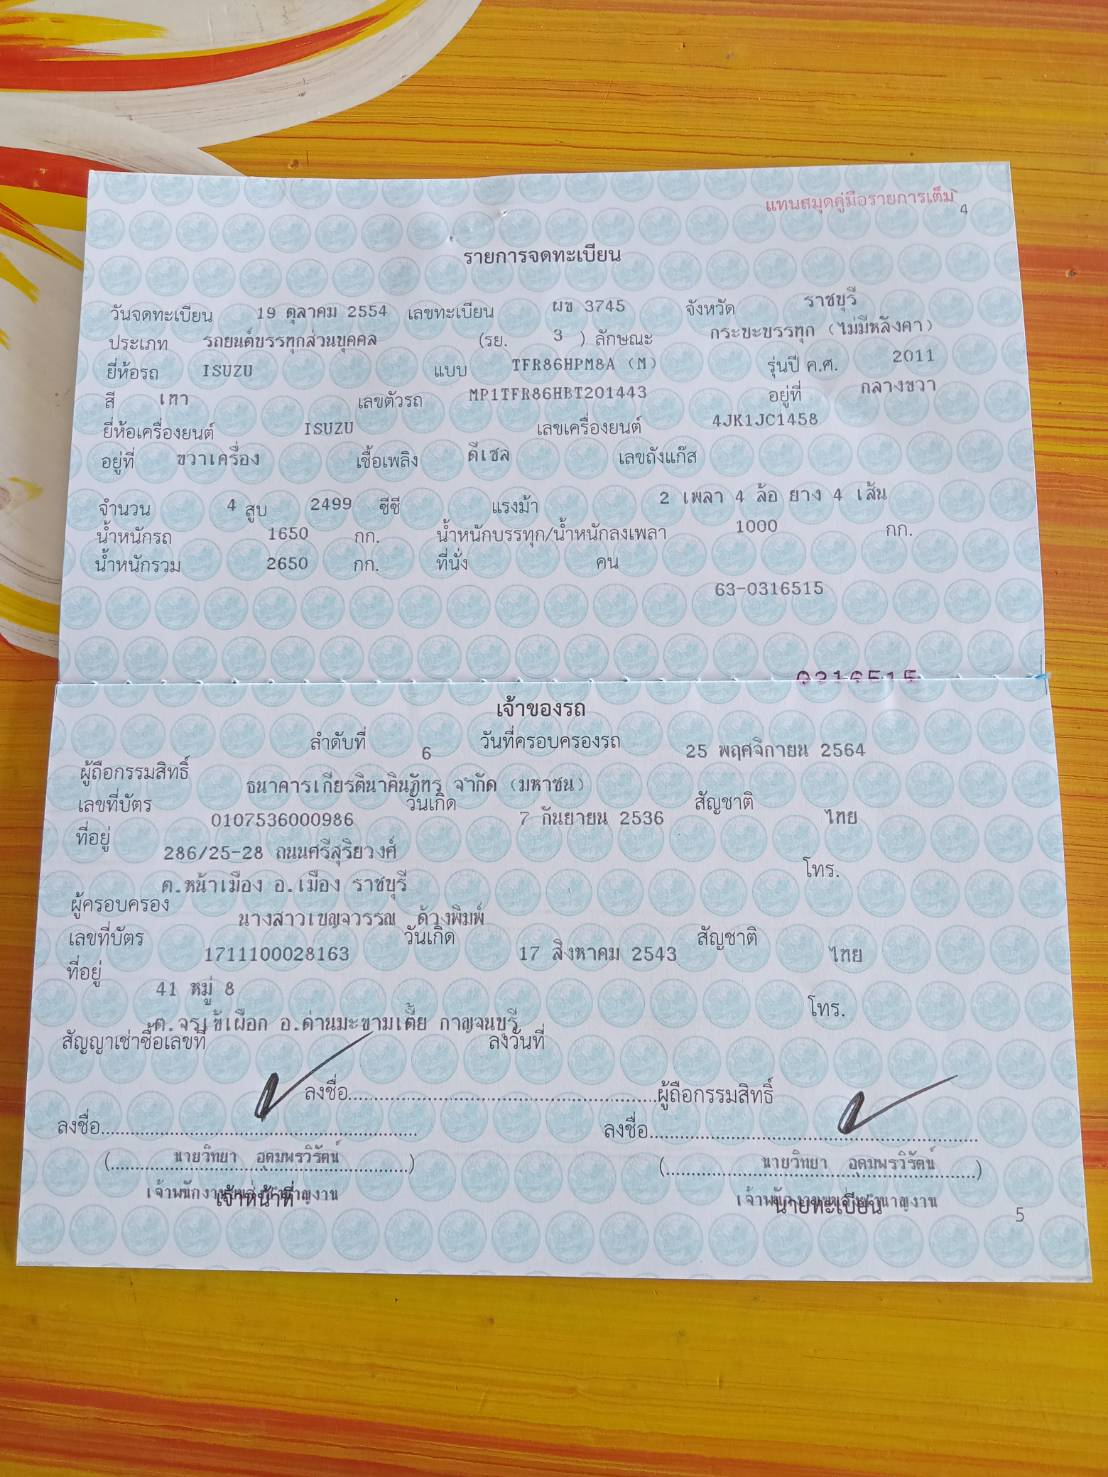 แทนสมุดคู่มือรายการเต็ม
4
รายการจดทะเบียน
วันจดทะเบียน 19 ตุลาคม 2554 เลขทะเบียน ผข 3745 จังหวัด ราชบุรี
ประเภท รถยนต์บรรทุกส่วนบุคคล (รย. 3 ) ลักษณะ กระบะบรรทุก (ไม่มีหลังคา)
ยี่ห้อรถ ISUZU แบบ TFR86HPM8A (M) รุ่นปี ค.ศ. 2011
สี เทา เลขตัวรถ MP1TFR86HBT201443 อยู่ที่ กลางขวา
ยี่ห้อเครื่องยนต์ ISUZU เลขเครื่องยนต์ 4JK1JC1458
อยู่ที่ ขวาเครื่อง เชื้อเพลิง ดีเซล เลขถังแก๊ส
จำนวน 4 สูบ 2499 ซีซี แรงม้า 2 เพลา 4 ล้อ ยาง 4 เส้น
น้ำหนักรถ 1650 กก. น้ำหนักบรรทุก/น้ำหนักลงเพลา 1000 กก.
น้ำหนักรวม 2650 กก. ที่นั่ง คน
63-0316515
0316515
เจ้าของรถ
ลำดับที่ 6 วันที่ครอบครองรถ 25 พฤศจิกายน 2564
ผู้ถือกรรมสิทธิ์ ธนาคารเกียรตินาคินภัทร จำกัด (มหาชน)
เลขที่บัตร 0107536000986 วันเกิด 7 กันยายน 2536 สัญชาติ ไทย
ที่อยู่ 286/25-28 ถนนศรีสุริยวงศ์
ต.หน้าเมือง อ.เมือง ราชบุรี โทร.
ผู้ครอบครอง นางสาวเบญจวรรณ ด้วงพิมพ์
เลขที่บัตร 1711100028163 วันเกิด 17 สิงหาคม 2543 สัญชาติ ไทย
ที่อยู่ 41 หมู่ 8
ต.จรเข้เผือก อ.ด่านมะขามเตี้ย กาญจนบุรี โทร.
สัญญาเช่าซื้อเลขที่ ลงวันที่
ลงชื่อ......................................................ผู้ถือกรรมสิทธิ์
ลงชื่อ...................................................... ลงชื่อ......................................................
(นายวิทยา อุดมพรวิรัตน์) (นายวิทยา อุดมพรวิรัตน์)
เจ้าพนักงานขนส่งชำนาญงาน เจ้าพนักงานขนส่งชำนาญงาน
เจ้าหน้าที่ นายทะเบียน
5